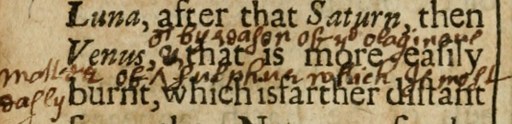 Luna, after that Saturn, then
or by reason of ye oleaginous
Venus, & that is more easily
matter of Sulphur which is most
easily burnt, which is farther distant